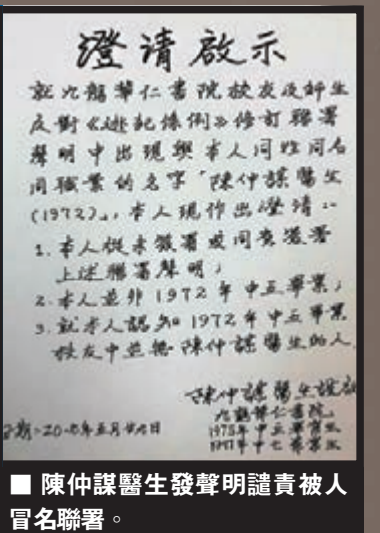 澄清啟示
就九龍華仁書院校友及師生
反對《逃犯條例》修訂聯署
聲明中出現與本人同姓同名
同職業的名字「陳仲謀醫生
(1972)」，本人現作出澄清：
1. 本人從未簽署或同意簽署
上述聯署聲明；
2. 本人並非1972年中五畢業；
3. 就本人認知1972年中五畢業
校友中並無陳仲謀醫生的人
陳仲謀醫生
九龍華仁書院
1975年中五畢業生
中七畢業生
■ 陳仲謀醫生發聲明譴責被人
冒名聯署。